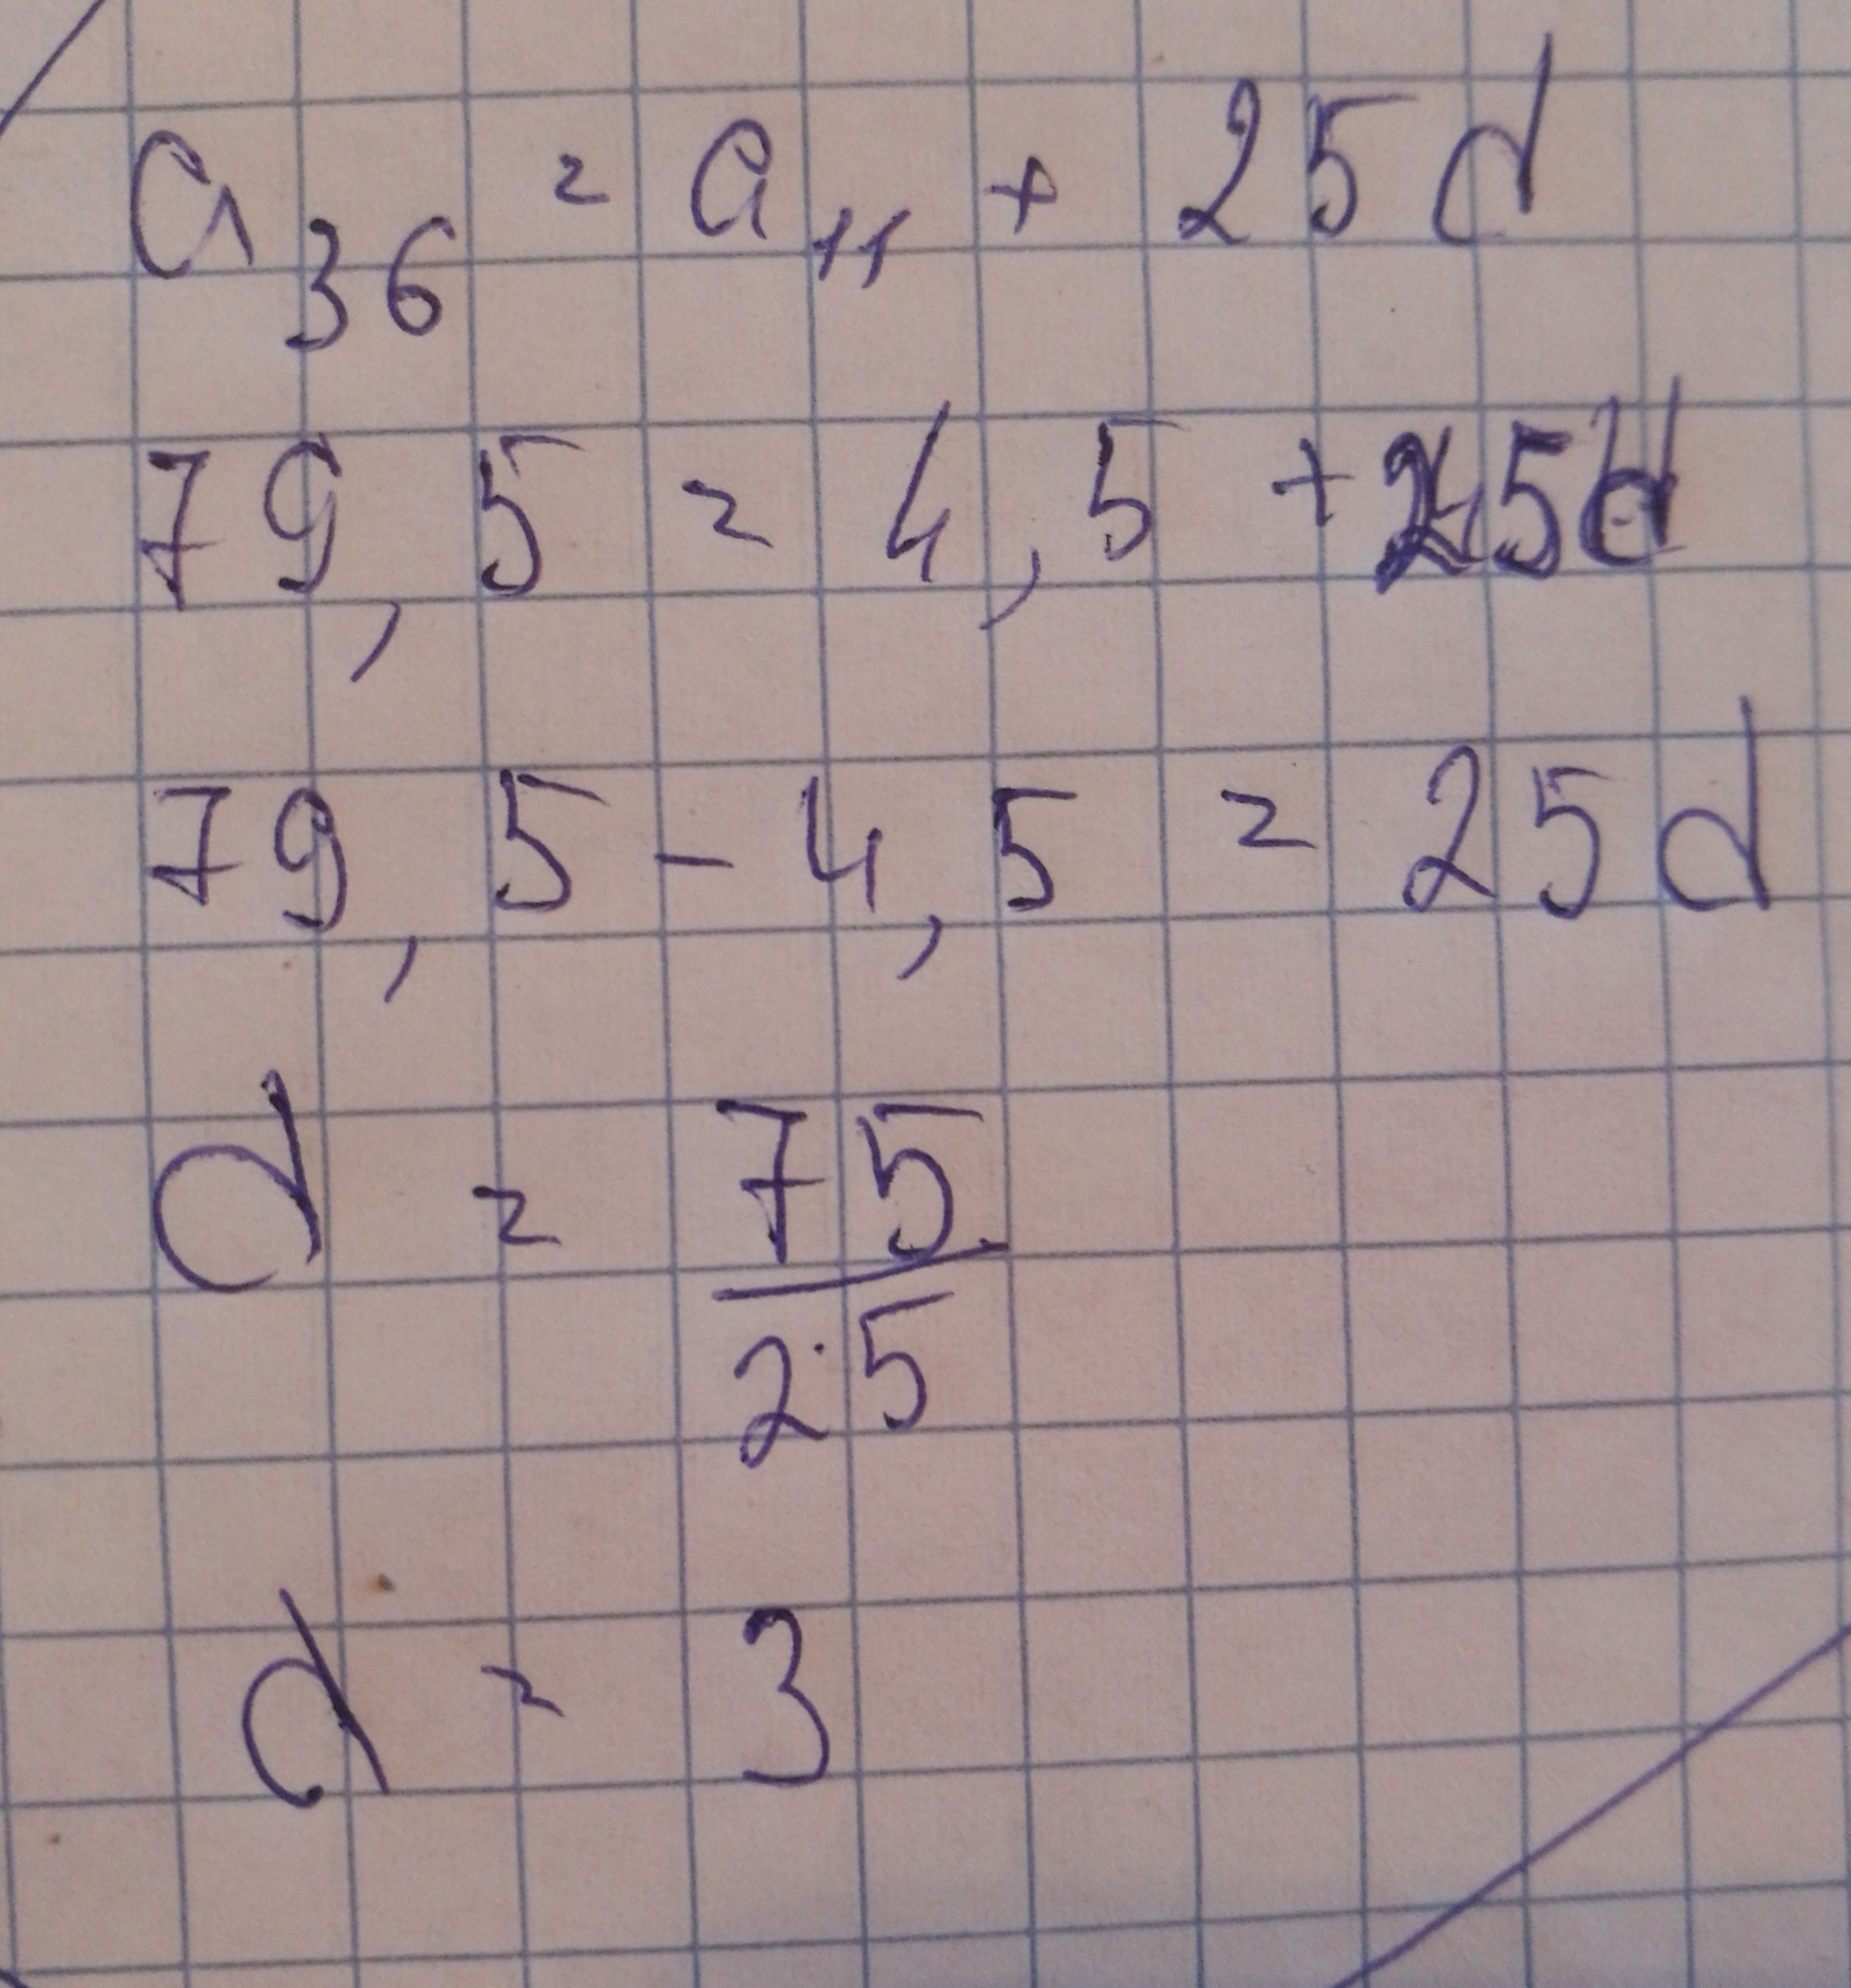 a₃₆ = a₁₁ + 25d
79,5 = 4,5 + 25d
79,5 - 4,5 = 25d
d = 75/25
d = 3